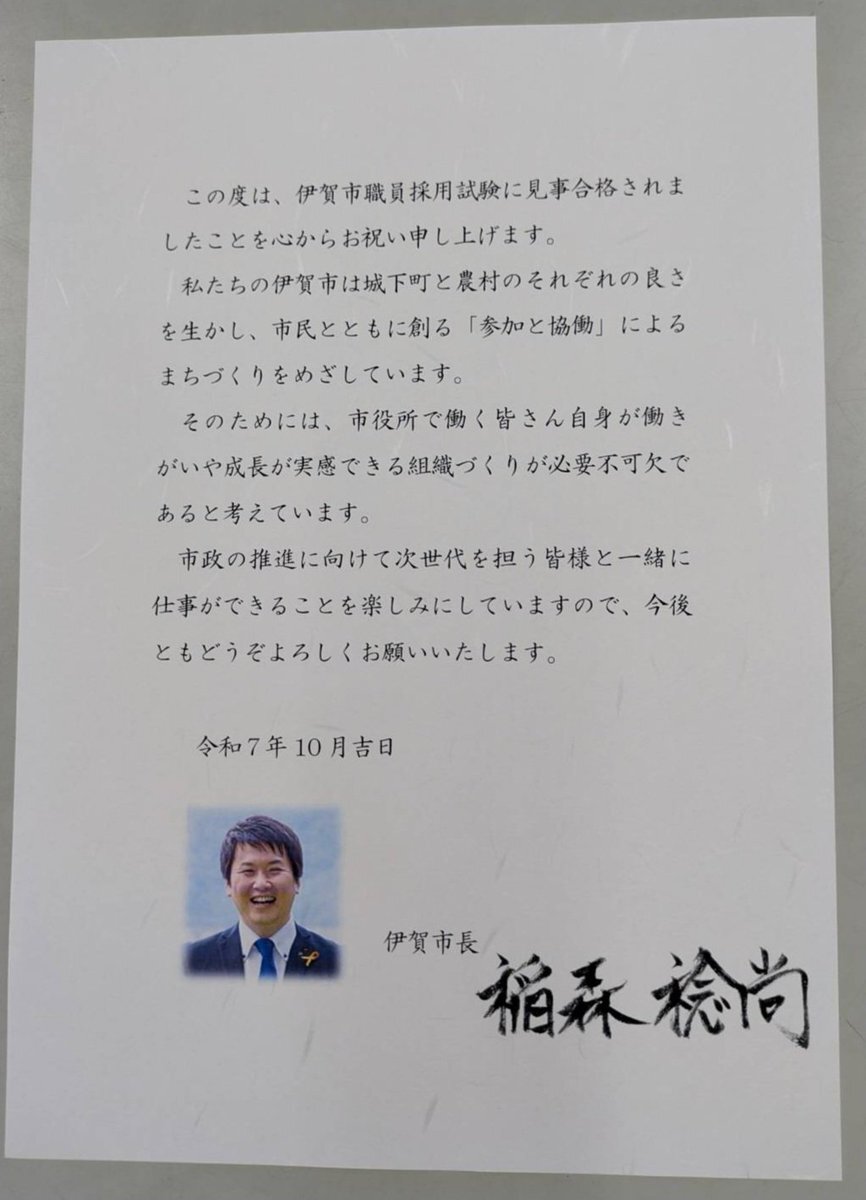 この度は、伊賀市職員採用試験に見事合格されま
したことを心からお祝い申し上げます。
私たちの伊賀市は城下町と農村のそれぞれの良さ
を生かし、市民とともに創る「参加と協働」による
まちづくりをめざしています。
そのためには、市役所で働く皆さん自身が働き
がいや成長が実感できる組織づくりが必要不可欠で
あると考えています。
市政の推進に向けて次世代を担う皆様と一緒に
仕事ができることを楽しみにしていますので、今後
ともどうぞよろしくお願いいたします。
令和7年10月吉日
伊賀市長
稲森稔尚